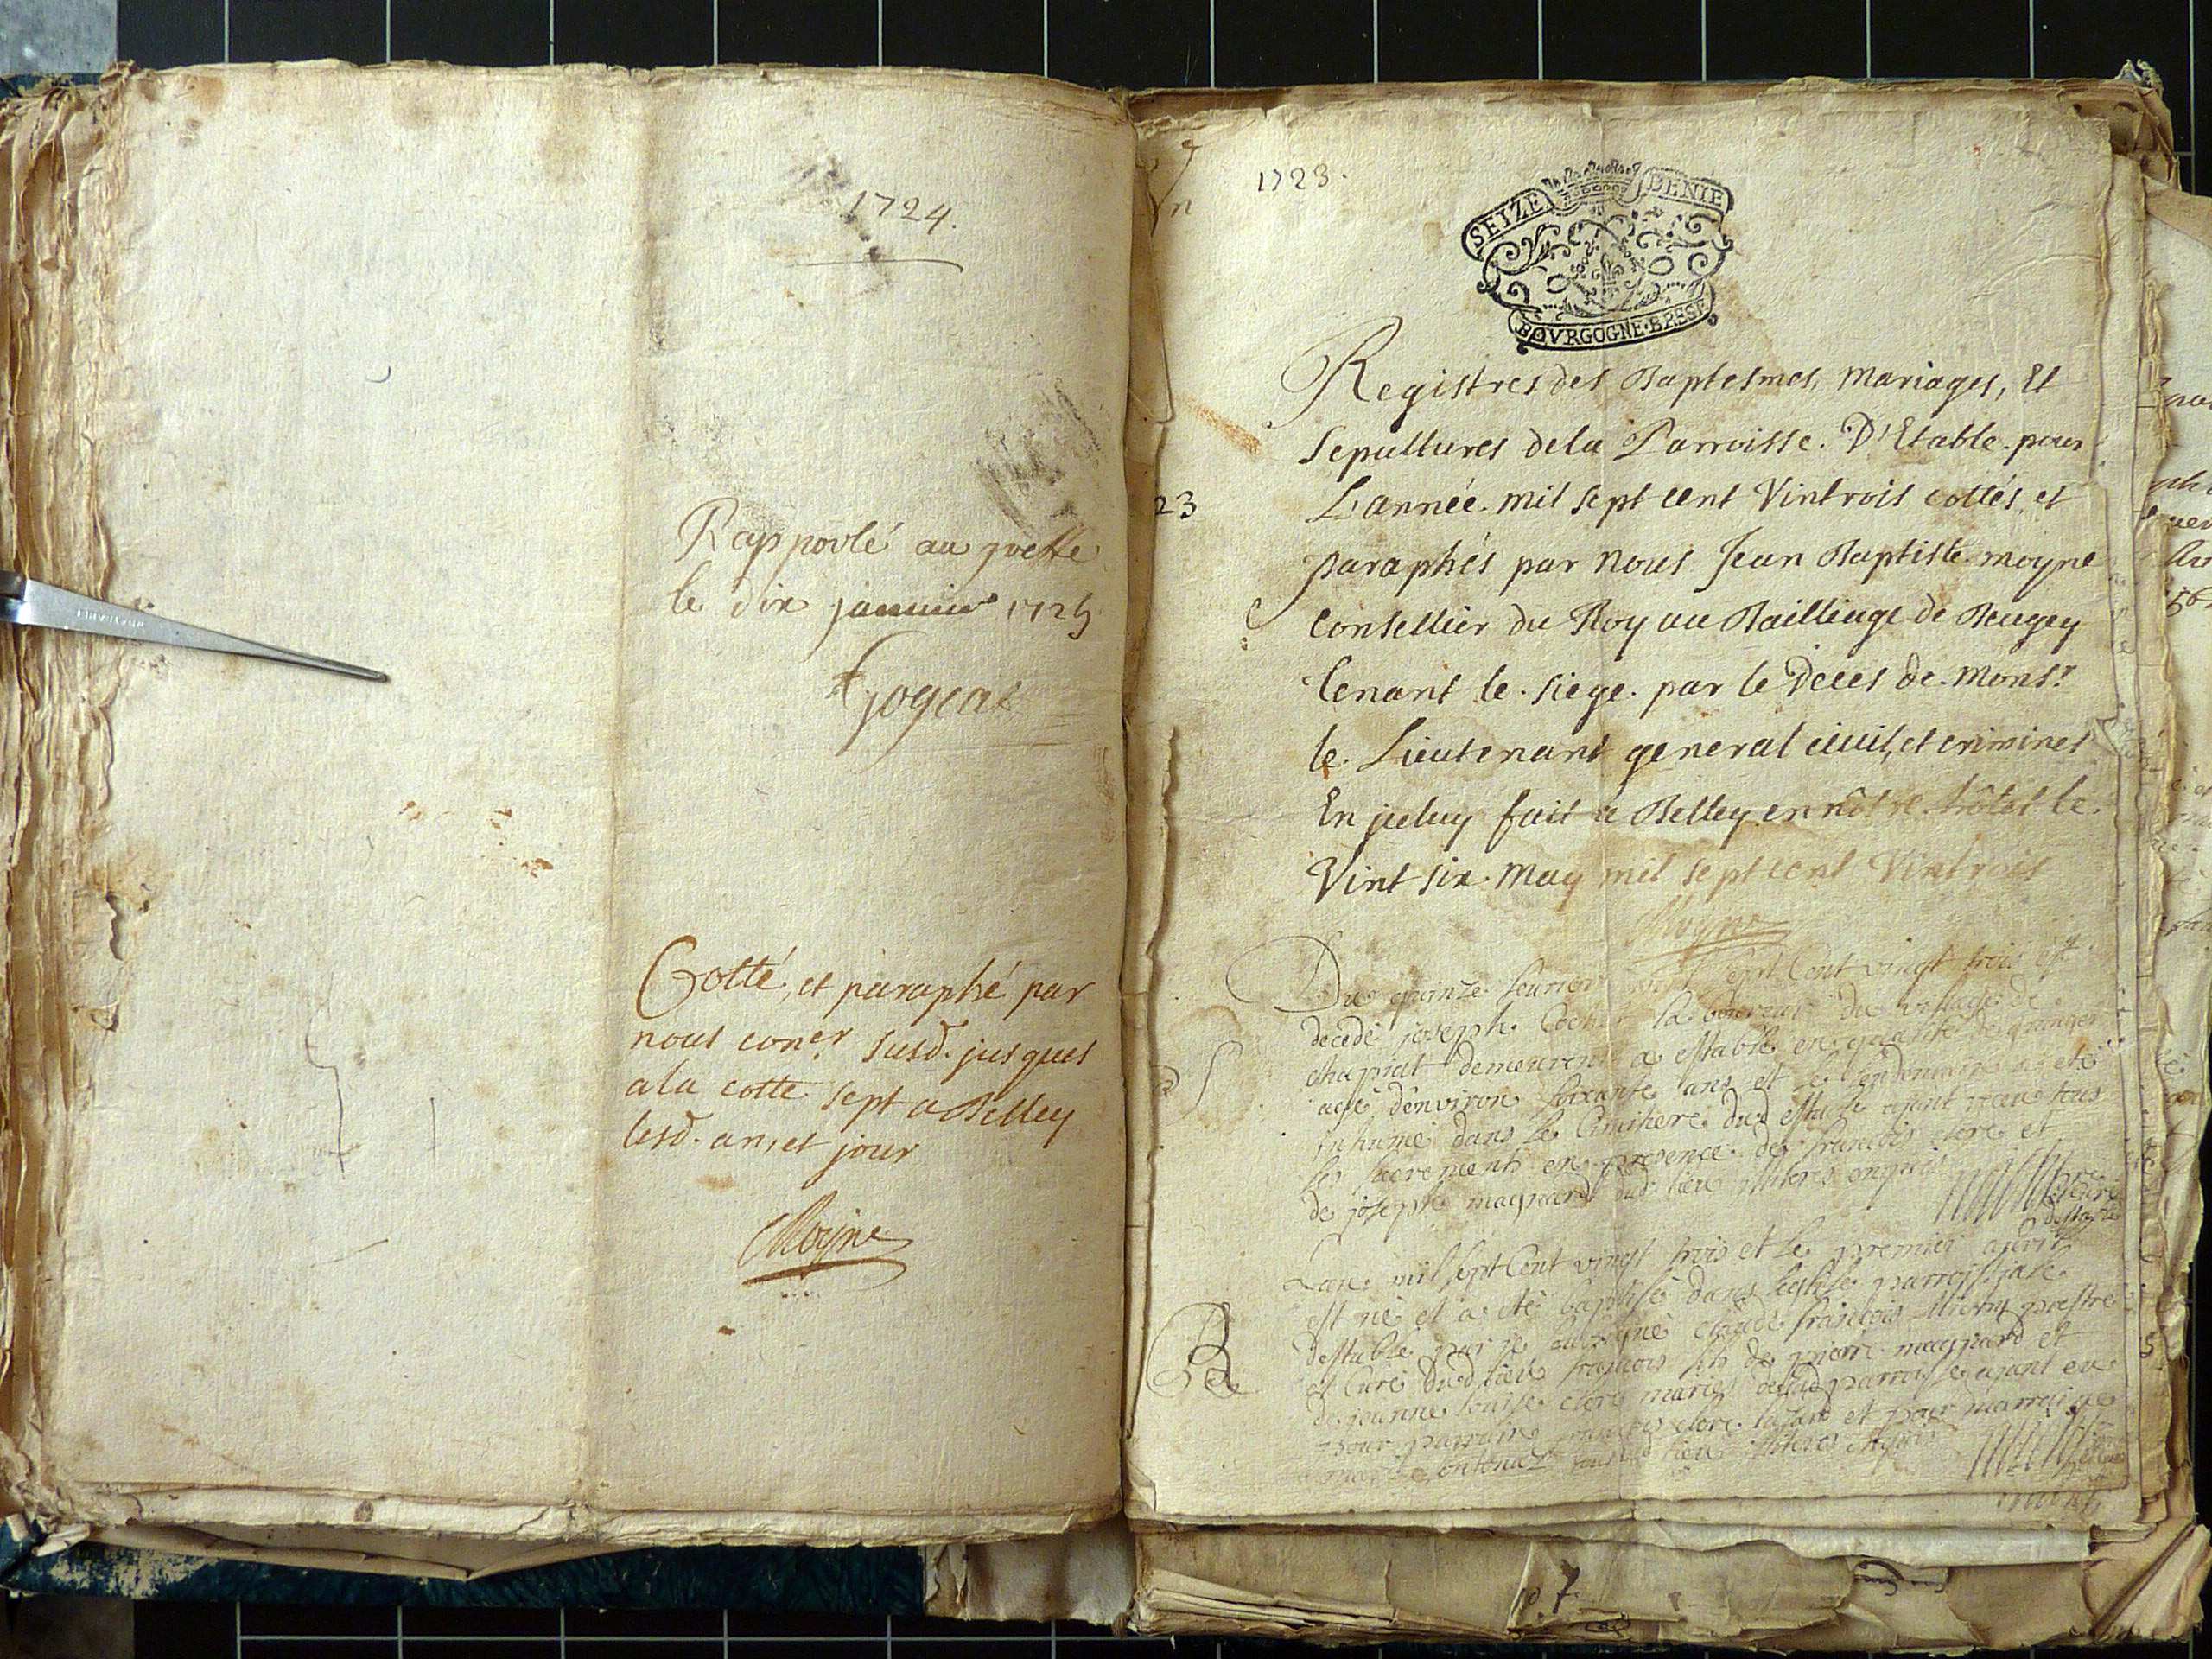 1724.
Rapporté au greffe
le dix janvier 1725
Cotté, et paraphé par
nous coner. susd. jusques
a la cotte sept a Belley
lesd. an, et jour
Moyne
1723.
SEIZE DENIE
BOVRGOGNE·BRESSE
Registres des Baptesmes, Mariages, Et
Sepultures dela Parroisse. D'Etable. pour
23
L'année. mil sept cent Vintrois cottés, et
paraphés par Nous Jean Baptiste moyne
Conseillier du Roy au Bailliage de Beugey
tenant le. siege. par le Deces de. Monsr.
le. Lieutenant general civil, et criminel
En jceluy fait a Belley en nôtre hôtel le.
Vint six. May mil sept cent Vintrois
Moyne
Du quinze feuvrier mil sept Cent vingt trois est
decedé joseph laboureur du village de
chapiat demeurent a estable en qualité de granger
agé d'environ soixante ans et le lendemain a eté
inhumé dans le Cimithere dud estable ajant receu tous
les sacrements en presence de francois clerc et
de joseph magnard dud lieu illiteres enquis
S
Lan mil sept Cent vingt trois et le premier
est né et a eté baptisé dans leglise parroissiale
destable par je soubsigné claude francois prestre
et Curé dud lieu francois fils de pierre magnard et
B
de jeanne louise clerc mariés delad parroisse ajant eu
pour parrain francois clerc et pour marraine
lieu illiteres enquis
7